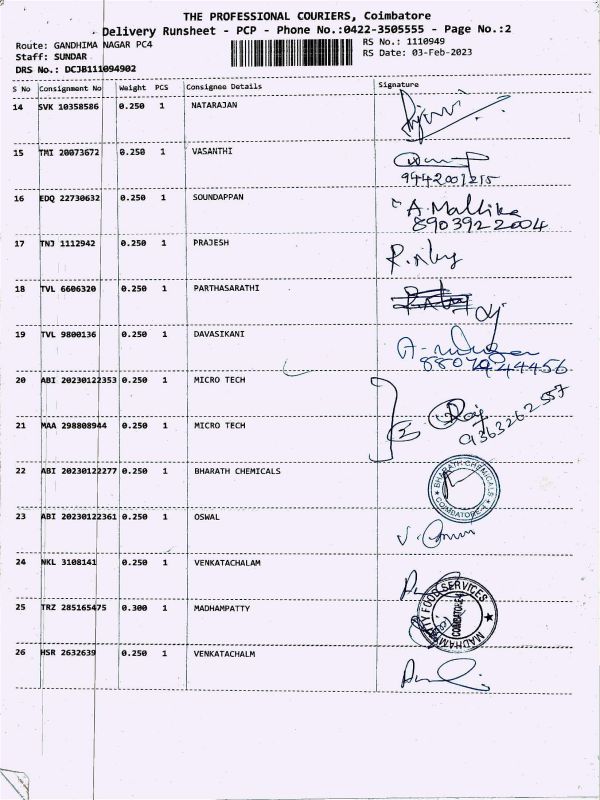 THE PROFESSIONAL COURIERS, Coimbatore
Delivery Runsheet - PCP - Phone No.:0422-3505555 - Page No.:2
Route: GANDHIMA NAGAR PC4 RS No.: 1110949
Staff: SUNDAR RS Date: 03-Feb-2023
DRS No.: DCJB111094902
S No Consignment No Weight PCS Consignee Details Signature
14 SVK 10358586 0.250 1 NATARAJAN
15 TMI 20073672 0.250 1 VASANTHI
9442001215
16 EDQ 22730632 0.250 1 SOUNDAPPAN A. Mallika
8903922004
17 TNJ 1112942 0.250 1 PRAJESH
18 TVL 6606320 0.250 1 PARTHASARATHI
19 TVL 9800136 0.250 1 DAVASIKANI
20 ABI 20230122353 0.250 1 MICRO TECH
21 MAA 298808944 0.250 1 MICRO TECH
9363262557
22 ABI 20230122277 0.250 1 BHARATH CHEMICALS
BHARATH CHEMICALS
COIMBATORE
23 ABI 20230122361 0.250 1 OSWAL
24 NKL 3108141 0.250 1 VENKATACHALAM
25 TRZ 285165475 0.300 1 MADHAMPATTY
MADHAMPATTY FOOD SERVICES
COIMBATORE
26 HSR 2632639 0.250 1 VENKATACHALM